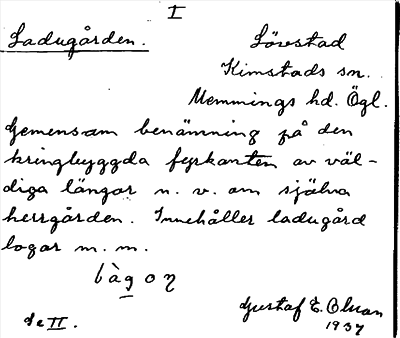 I
Ladugården.
Lövestad
Kimstads sn.
Memmings hd. Ögl.
Gemensam benämning på den
kringbyggda fyrkanten av väl-
diga längor n. v. om själva
herrgården. Innehåller ladugård
logar m. m.
se II.
Gustaf E. Olson
1937